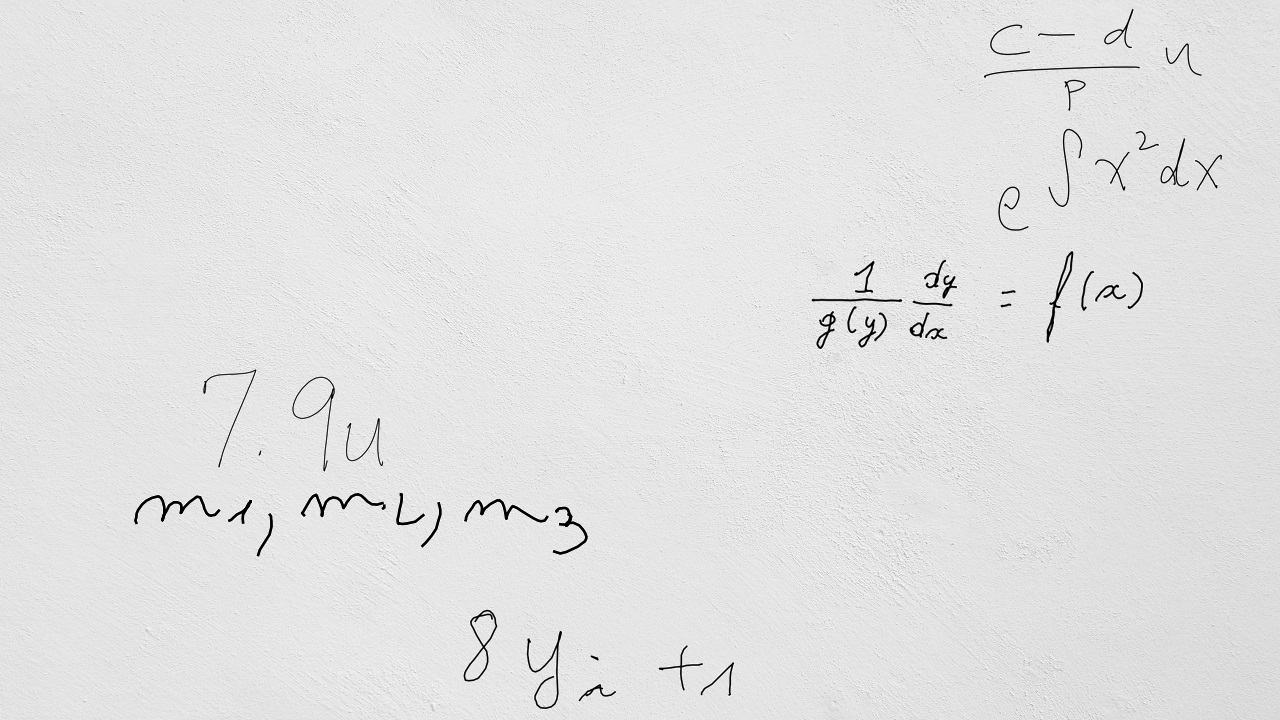 \frac{c-d}{p}u
e^{\int x^2dx}
\frac{1}{g(y)}\frac{dy}{dx}=f(x)
7.9u
m_1,m_2,m_3
8y_i+1